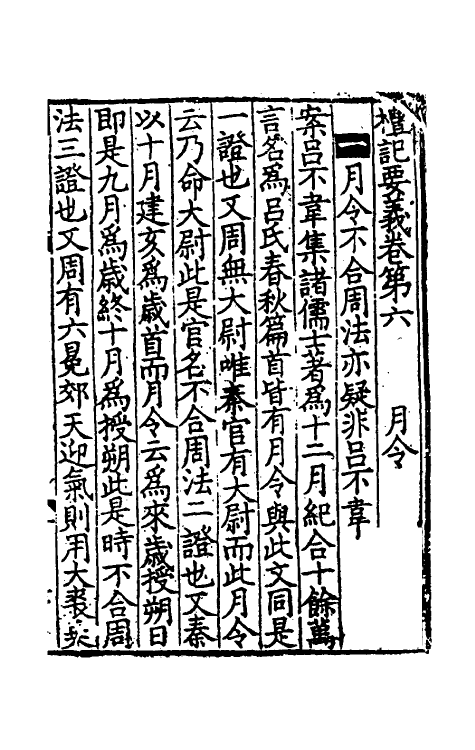 禮記要義卷第六 月令
一 月令不合周法亦疑非吕不韋
案吕不韋集諸儒士著爲十二月紀合十餘萬
言名爲吕氏春秋篇首皆有月令與此文同是
一證也又周無大尉唯秦官有大尉而此月令
云乃命大尉此是官名不合周法二證也又秦
以十月建亥爲歲首而月令云爲來歲授朔日
即是九月爲歲終十月爲授朔此是時不合周
法三證也又周有六冕郊天迎氣則用大裘